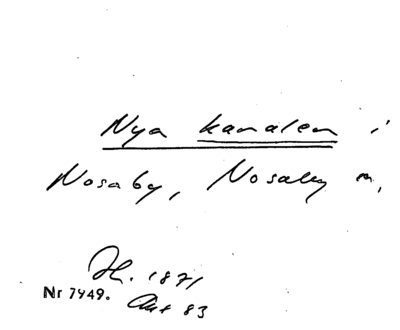 Nya kanalen i
Nosaby, Nosaby
1871
Nr 7949.
83